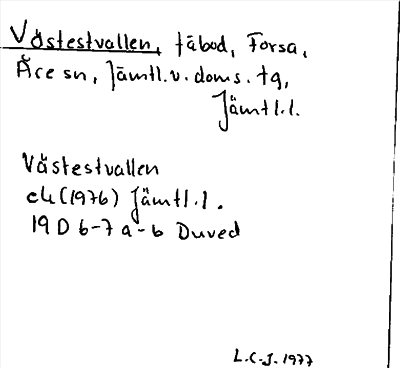 Västestvallen, fäbod, Forsa,
Åre sn, Jämtl.v. doms. tg,
Jämtl.l.
Västestvallen
ek (1976) Jämtl.l.
19 D 6-7 a-b Duved
L.C-J. 1977